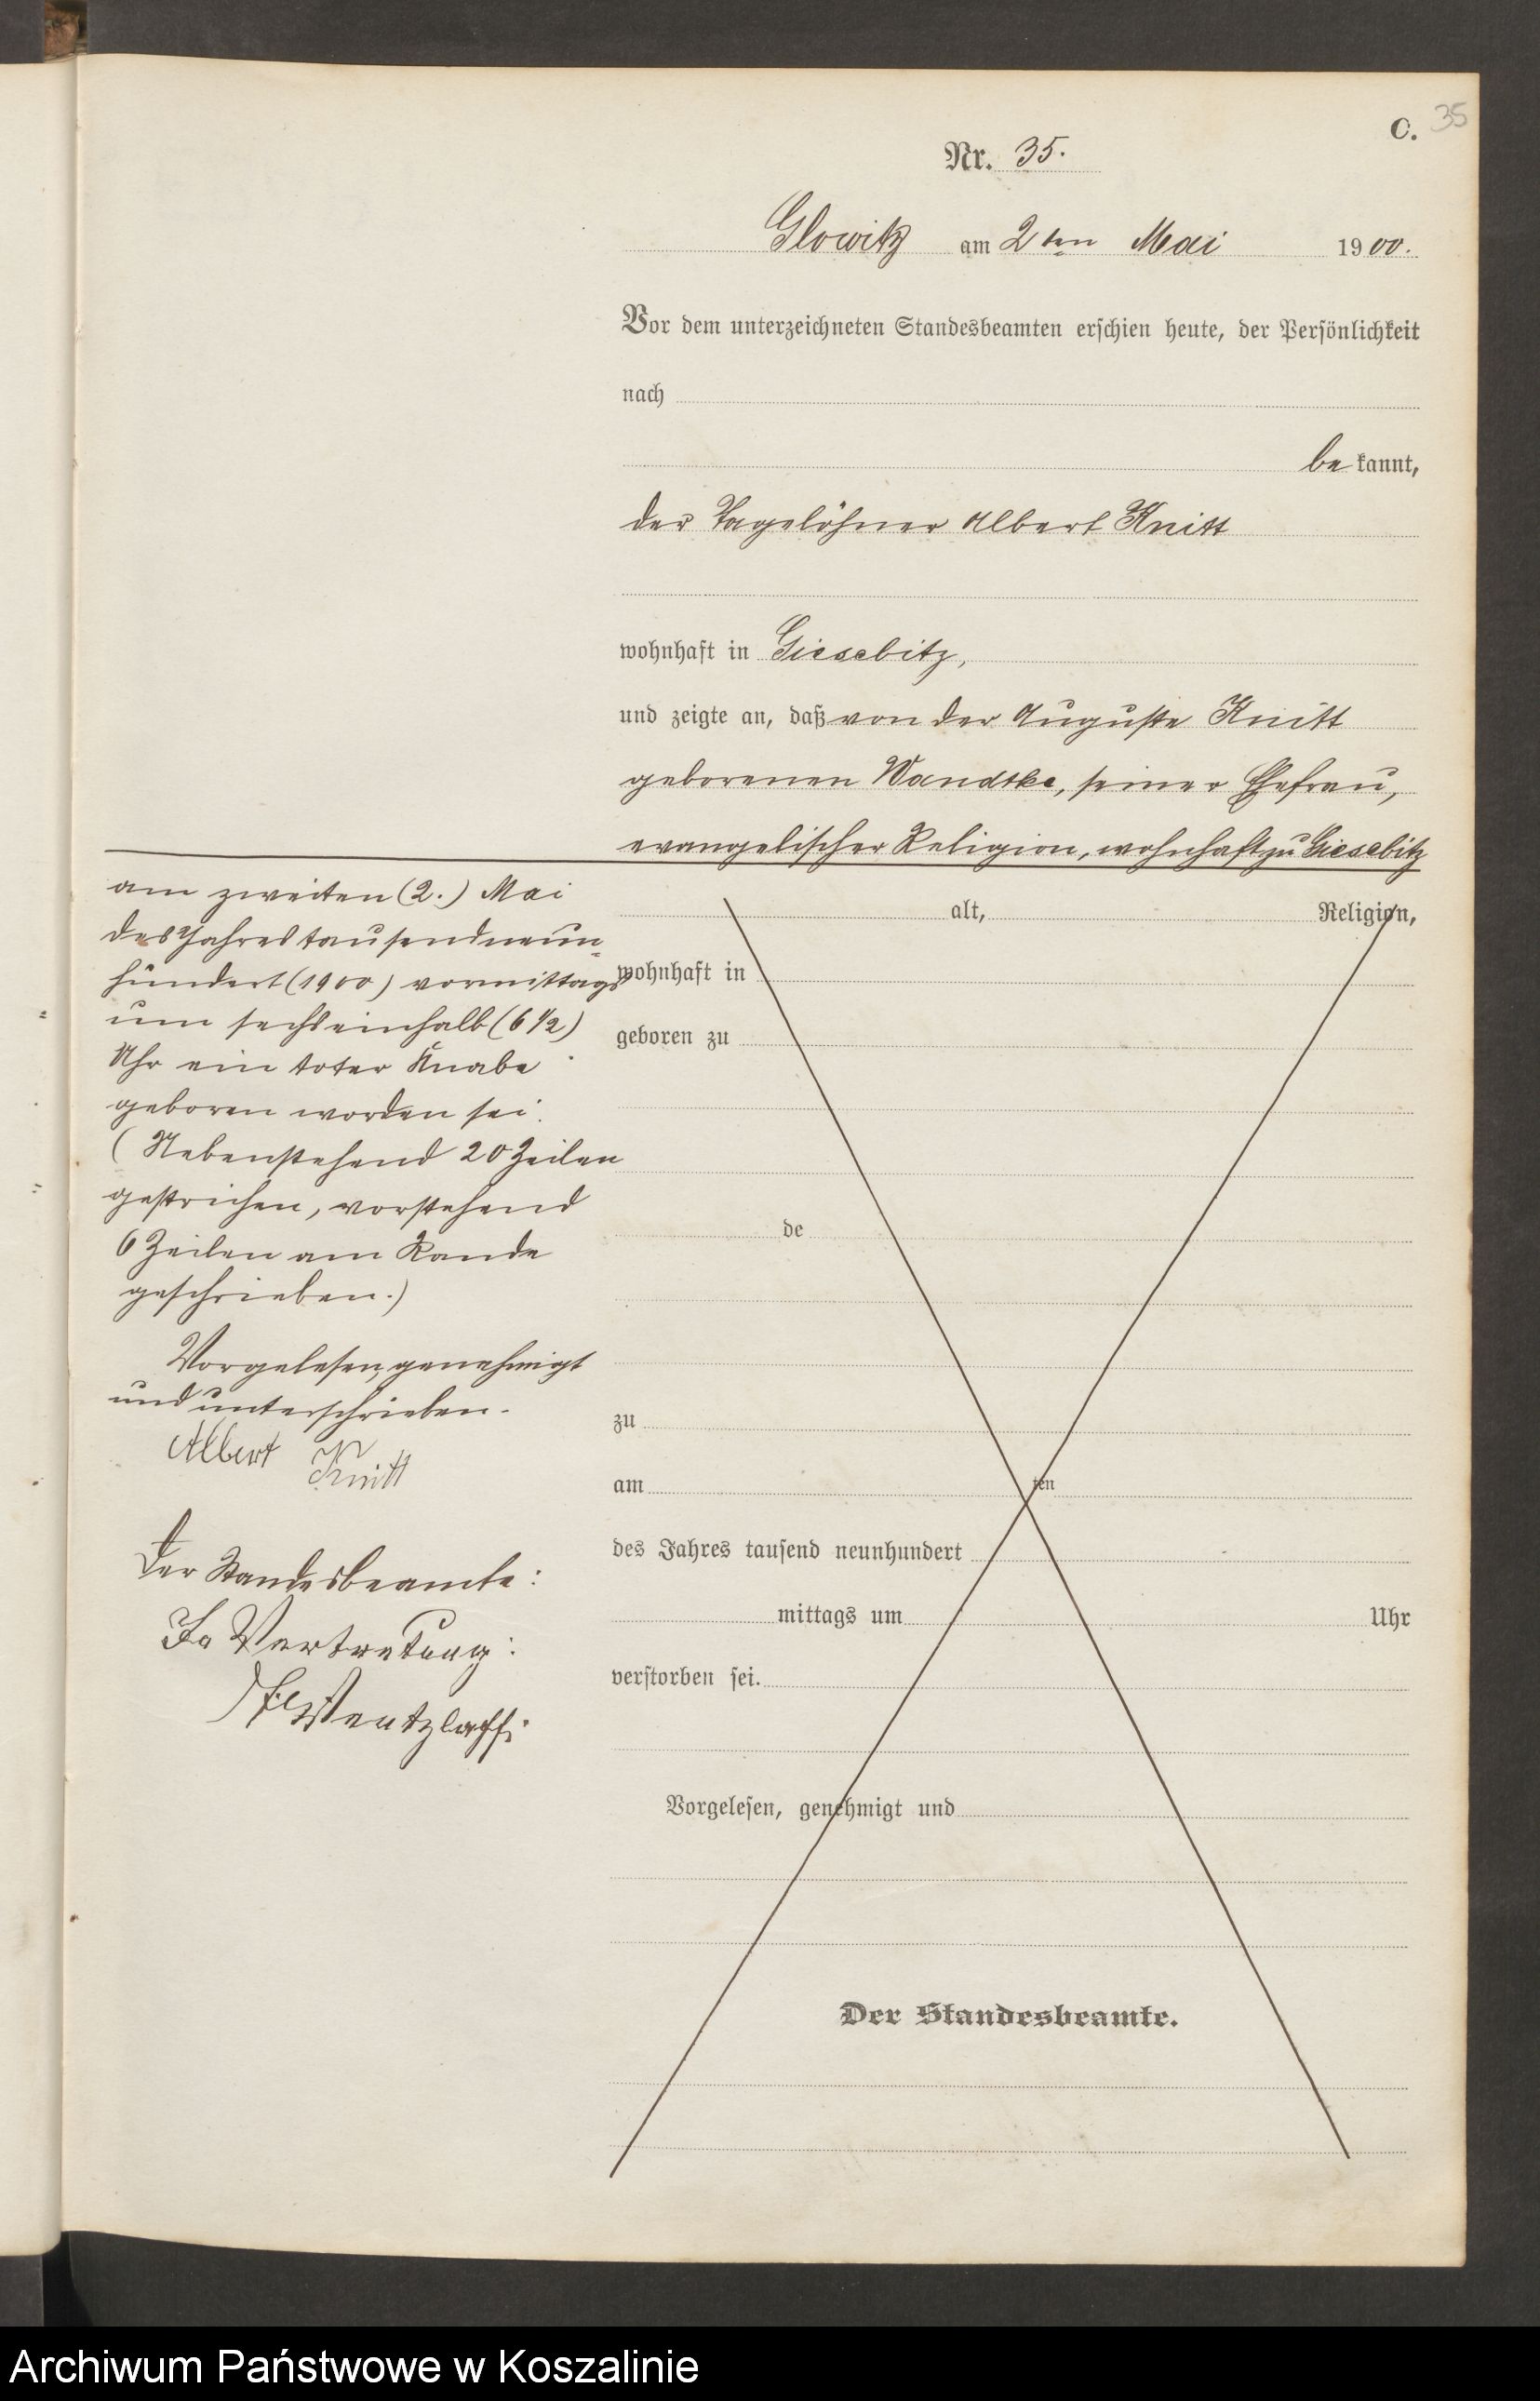 C. 35
Nr. 35.
Glowitz am 2ten Mai 1900.
Vor dem unterzeichneten Standesbeamten erschien heute, der Persönlichkeit
nach
be kannt,
der Tagelöhner Albert Knitt
wohnhaft in Giesebitz,
und zeigte an, daß von der Auguste Knitt
geborenen Wandtke, seiner Ehefrau,
evangelischer Religion, wohnhaft zu Giesebitz
am zweiten (2.) Mai
des Jahres tausendneun-
hundert (1900) vormittags
um sechseinhalb (6 1/2)
Uhr ein toter Knabe
geboren worden sei.
(Nebenstehend 20 Zeilen
gestrichen, vorstehend
6 Zeilen am Rande
geschrieben.)
Vorgelesen, genehmigt
und unterschrieben.
Albert Knitt
Der Standesbeamte:
In Vertretung:
Wentzlaff
alt, Religion,
wohnhaft in
geboren zu
de
zu
am ten
des Jahres tausend neunhundert
mittags um Uhr
verstorben sei.
Vorgelesen, genehmigt und
Der Standesbeamte.
Archiwum Państwowe w Koszalinie